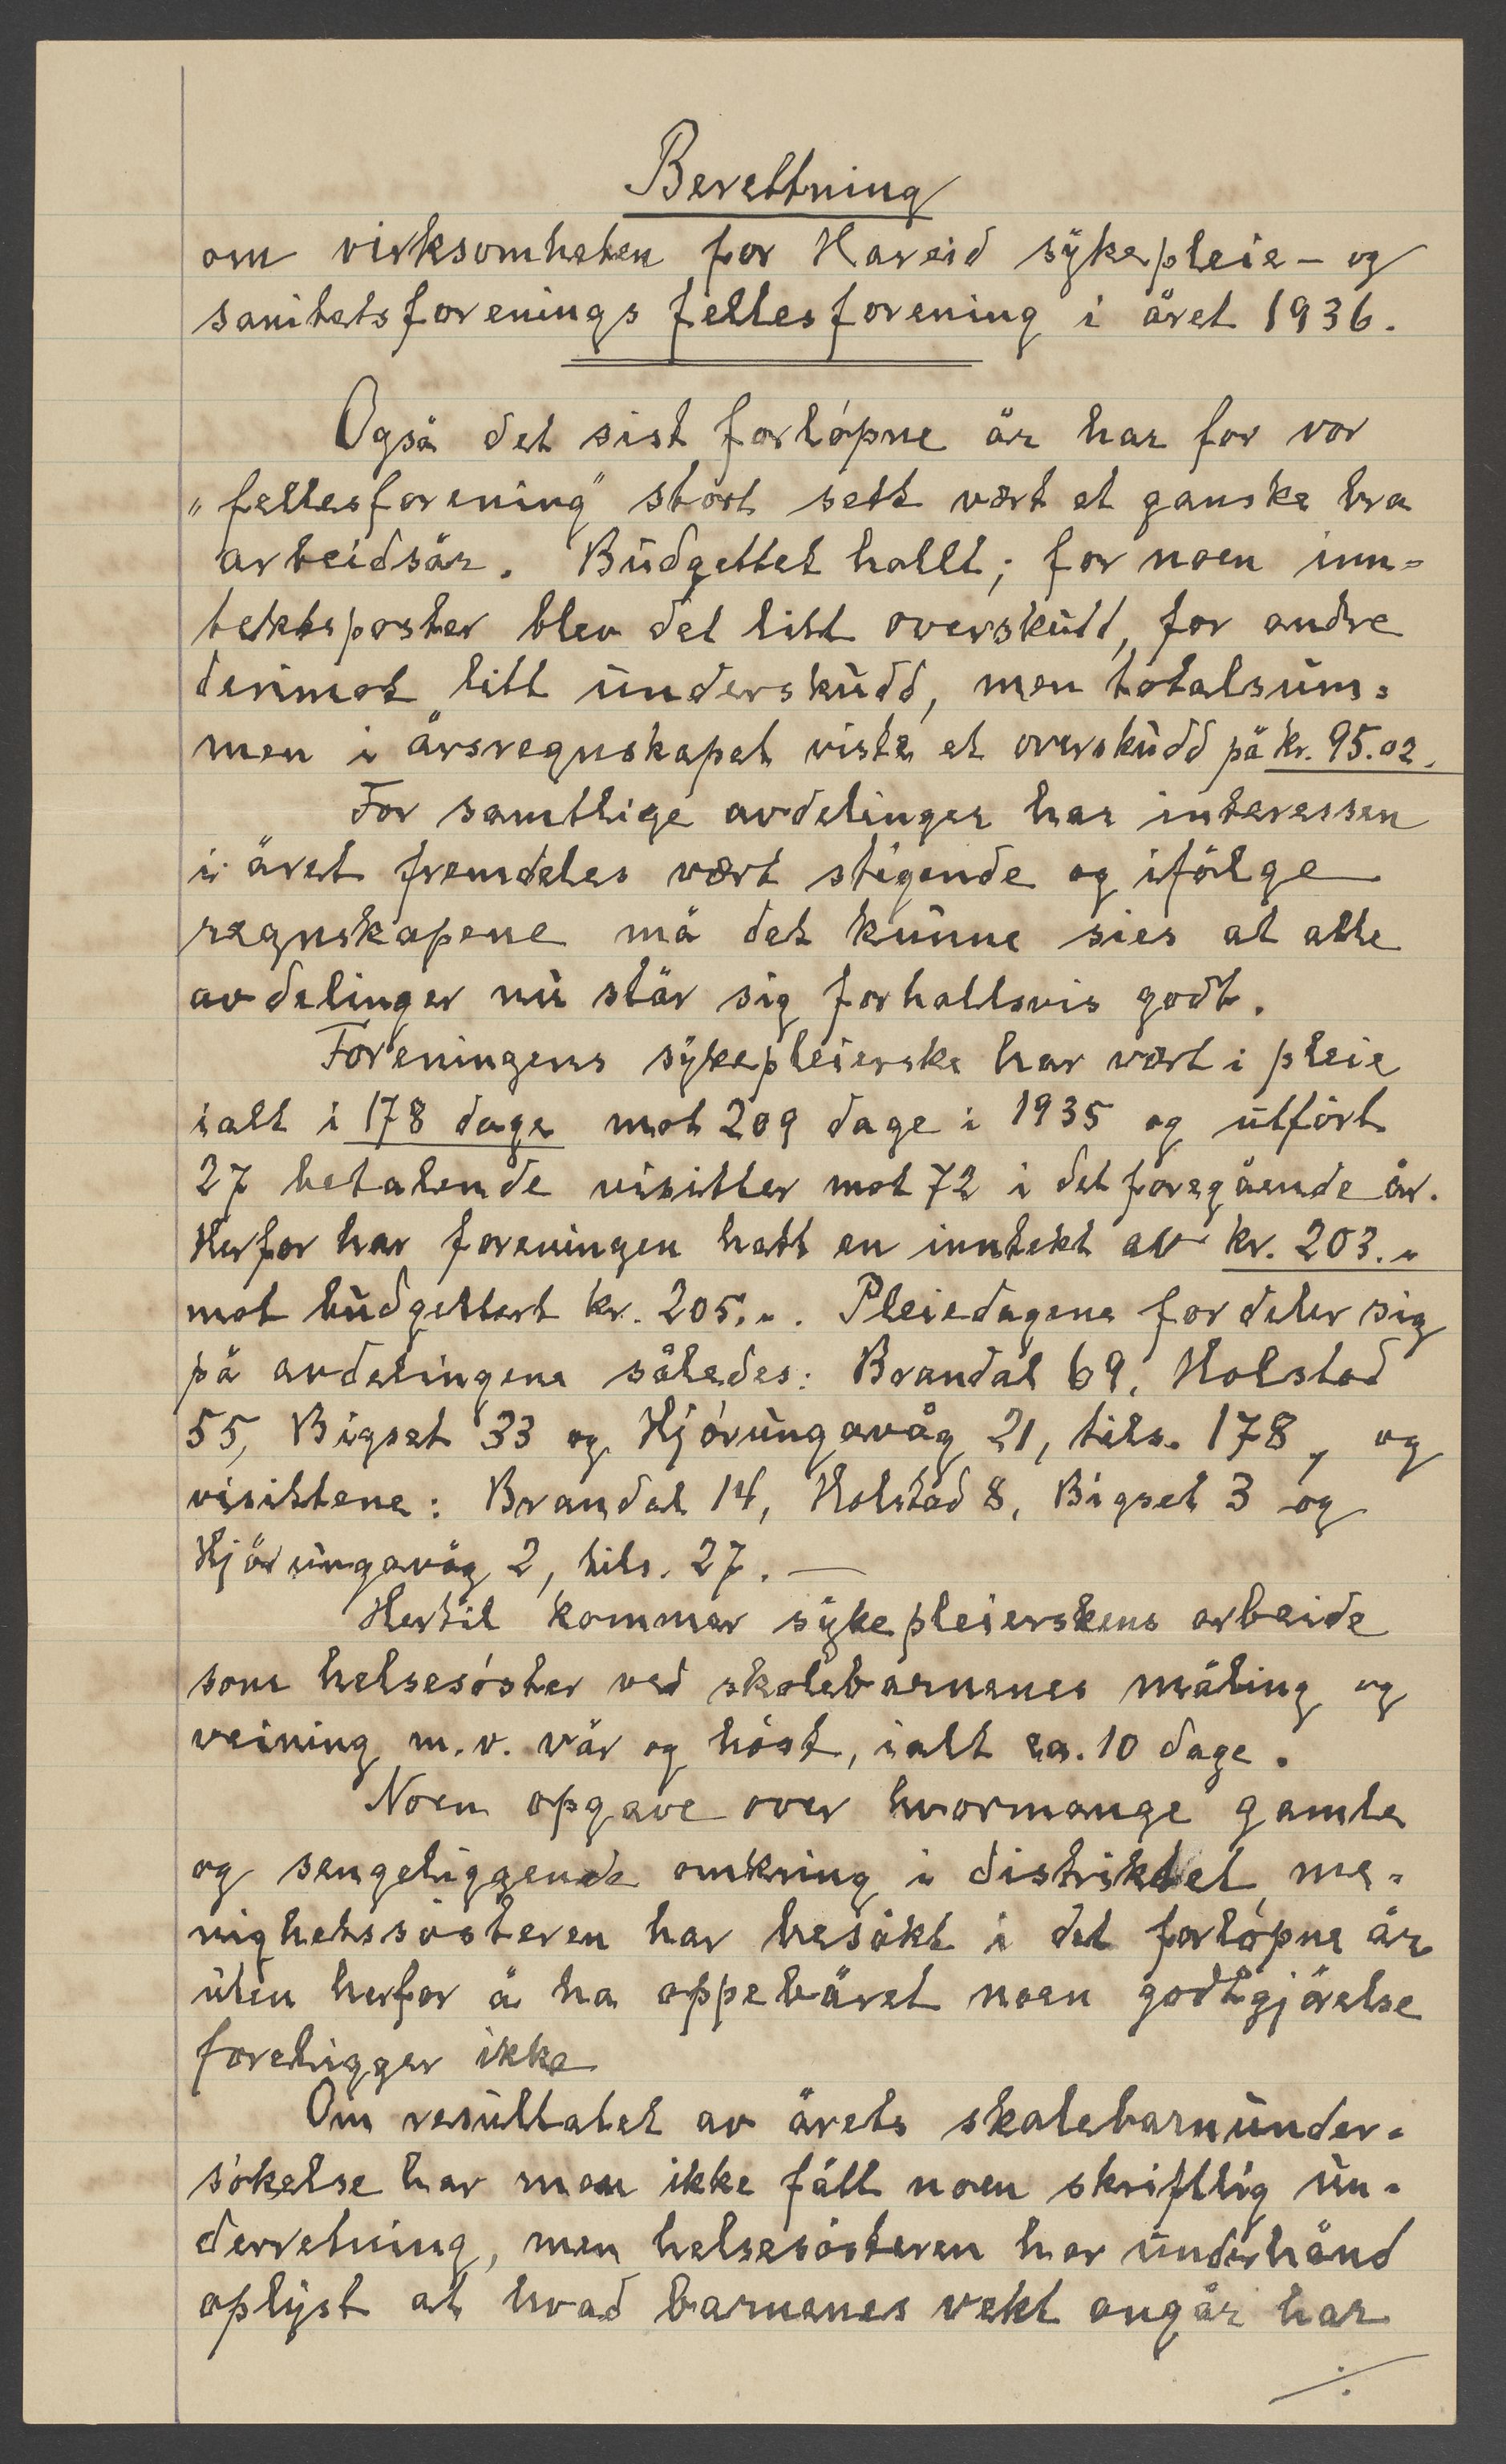 Berettning
om virksomheten for Hareid sykepleie- og
sanitetsforenings fellesforening i året 1936.
Også det sist forløpne år har for vor
„fellesforening" stort sett vært et ganske bra
arbeidsår. Budgettet hollt; for noen inn=
tektsposter blev det litt overskudd, for andre
derimot litt underskudd, men totalsum=
men i årsregnskapet viste et overskudd på kr. 95.02.
For samtlige avdelinger har interessen
i året fremdeles vært stigende og ifölge
regnskapene må det kunne sies at alle
avdelinger nu står sig forholdsvis godt.
Foreningens sykepleierske har vært i pleie
ialt i 178 dage mot 209 dage i 1935 og utfört
27 betalende visitter mot 72 i det foregående år.
Herfor har foreningen hatt en inntekt av kr. 203.„
mot budgettert kr. 205.„. Pleiedagene fordeler sig
på avdelingene således: Brandal 69, Holstad
55, Bigset 33 og Hjörungavåg 21, tils. 178, og
visittene: Brandal 14, Holstad 8, Bigset 3 og
Hjörungavåg 2, tils. 27. —
Hertil kommer sykepleierskens arbeide
som helsesöster ved skolebarnenes måling og
veining m.v. vår og höst, ialt ca. 10 dage.
Noen opgave over hvormange gamle
og sengeliggende omkring i distriktet me=
nighetssösteren har besökt i det forlöpne år
uten herfor å ha oppebåret noen godtgjörelse
foreligger ikke
Om resultatet av årets skolebarnunder=
sökelse har man ikke fått noen skriftlig un=
derretning, men helsesösteren har underhånd
oplyst at hvad barnenes vekt angår har
./.